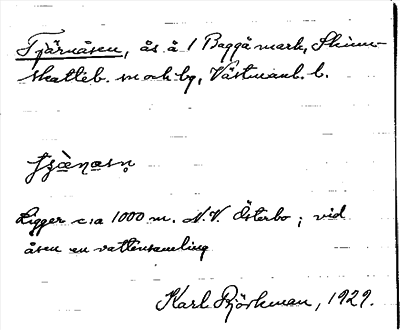 Tjärnåsen, ås å 1 Baggå mark, Skinn-
skatteb. sn och bg, Västmanl. l.
Ligger c:a 1000 m. N.V. Österbo; vid
åsen en vattensamling
Karl Björkman, 1929.